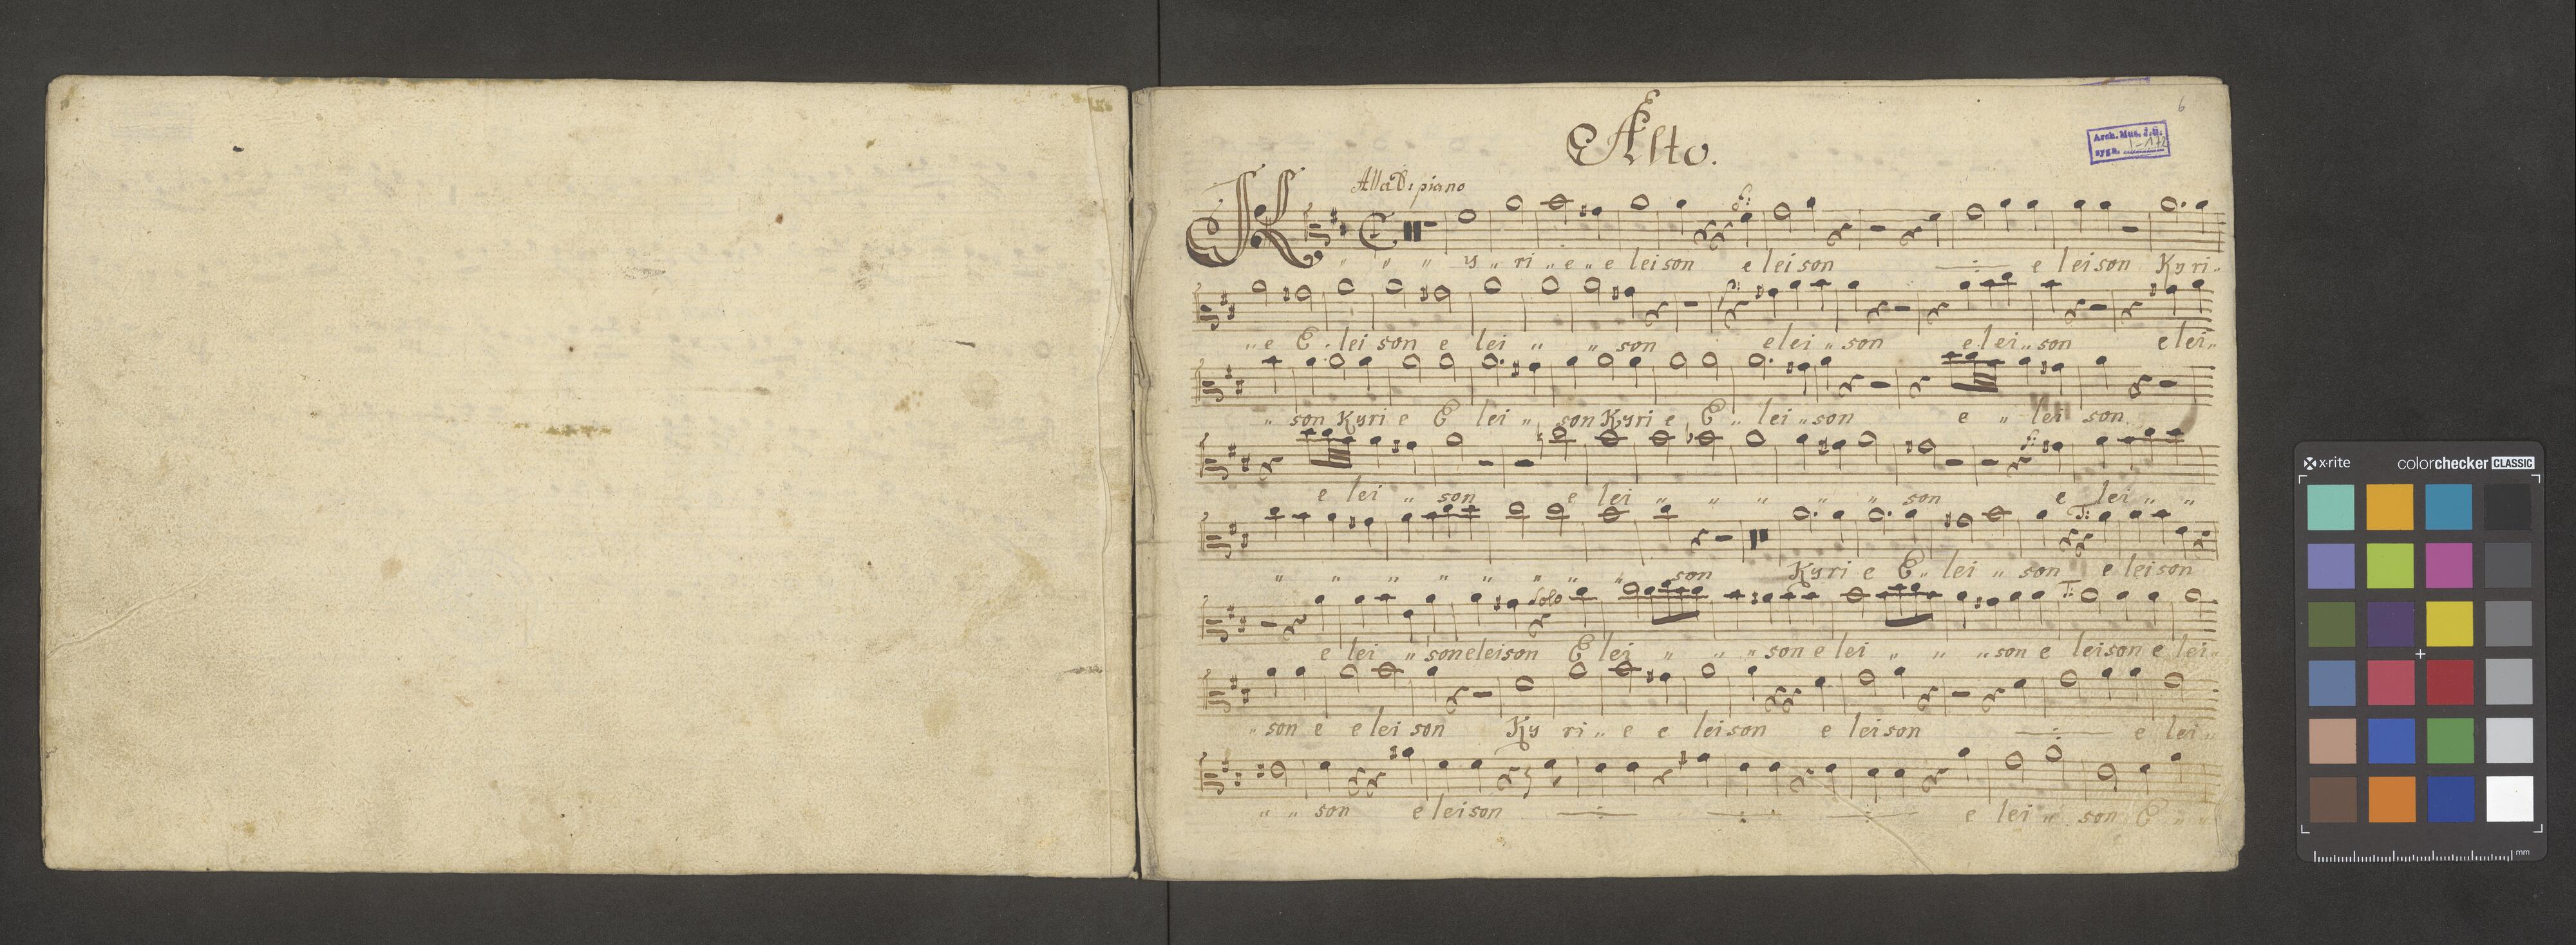 Alto.
6
Arch. Mus. J.G.
sygn. I-172
Alla B: piano
K " " " y " ri " e " e leison e leison ÷ e leison Kyri "
" e E " lei son e lei " " son e lei " son e lei " son e lei "
" son Kyri e E lei " son Kyri e E " lei " son e " lei son
e lei " son e lei " " " " " son e lei " "
" " " " " " " " son Kyri e E " lei " son e leison
Solo
e lei " son eleison E lei " " " son e lei " " " son e leison e lei "
" son e e lei son Ky ri " e e leison e leison ÷ e lei "
" " son e leison ÷ ÷ ÷ e lei " son E " "
x·rite
colorchecker CLASSIC
mm